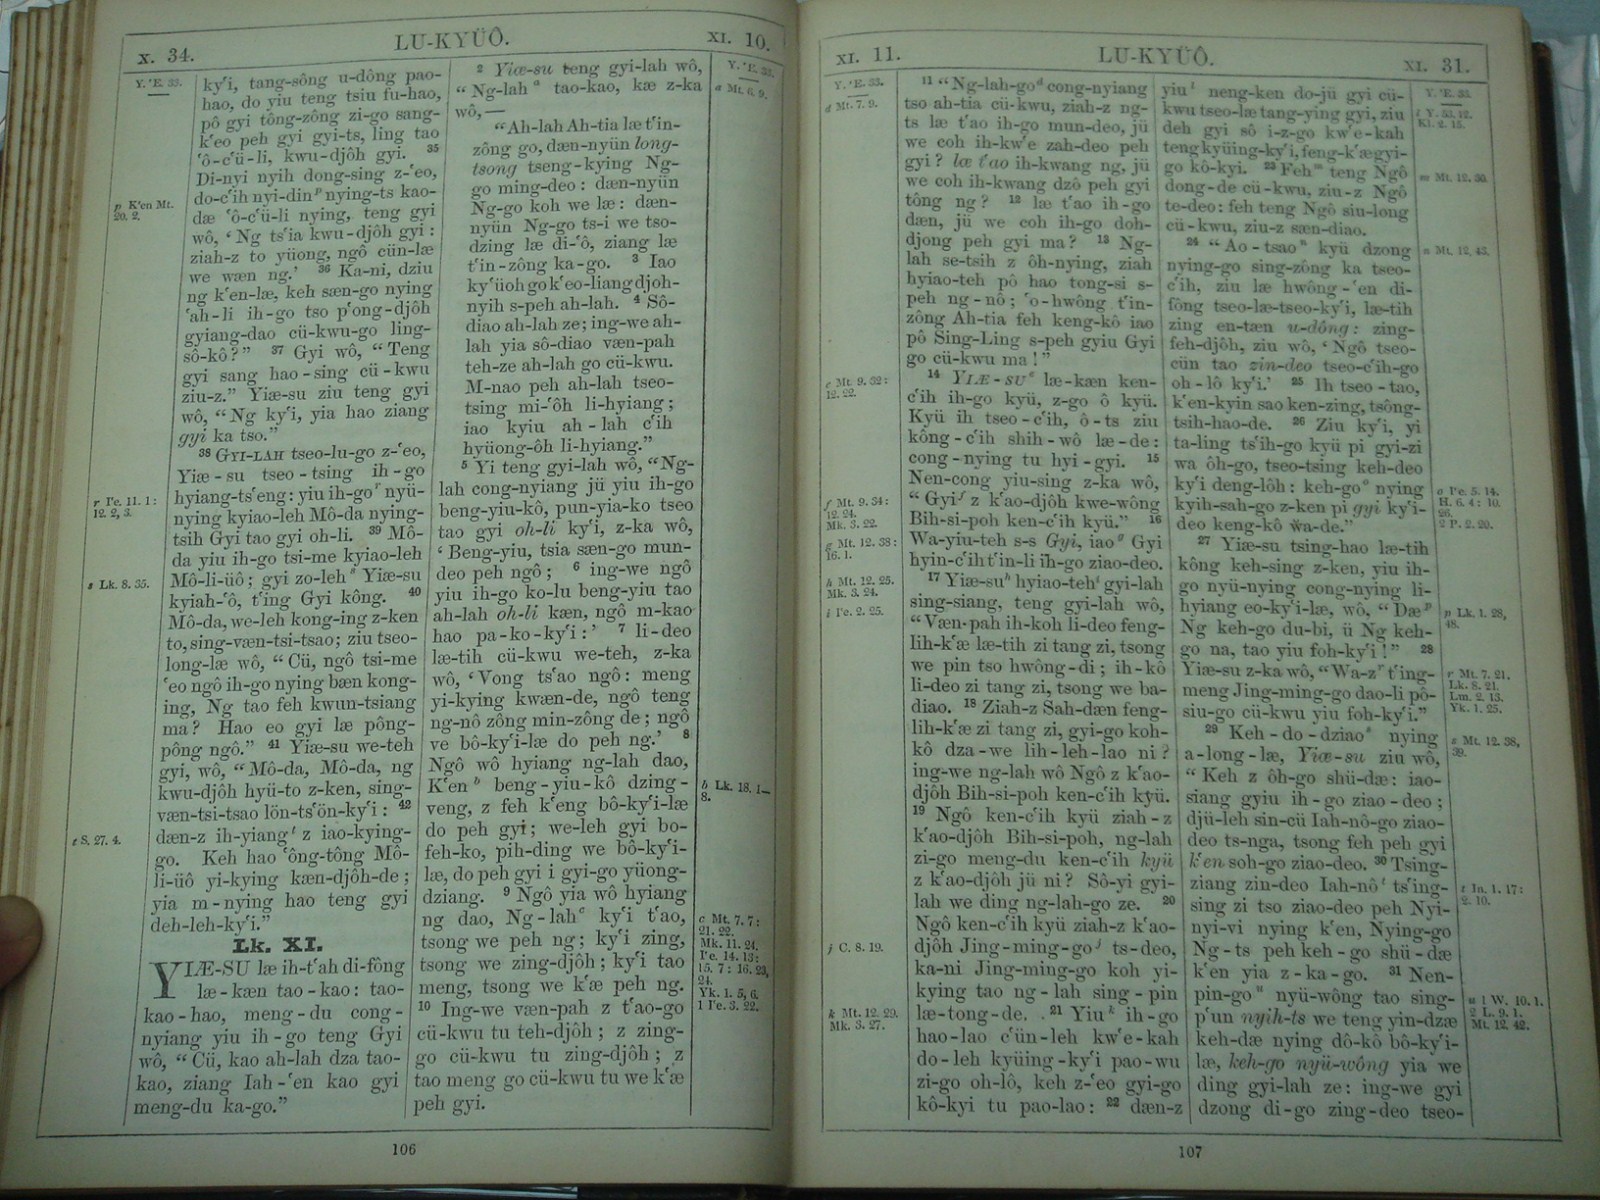 X. 34.
LU-KYÜÔ.
XI. 10.
Y. ʻE. 33.
p Kʻen Mt.
20. 2.
r Iʻe. 11. 1:
12. 2, 3.
s Lk. 8. 35.
t S. 27. 4.
kyʻi, tang-sông u-dông pao-
hao, do yiu teng tsiu fu-hao,
pô gyi tông-zông zi-go sang-
kʻeo peh gyi gyi-ts, ling tao
ʻô-cʻü-li, kwu-djôh gyi. 35
Di-nyi nyih dong-sing z-ʻeo,
do-cʻih nyi-din p nying-ts kao-
dæ ʻô-cʻü-li nying, teng gyi
wô, ‘Ng tsʻia kwu-djôh gyi:
ziah-z to yüong, ngô cün-læ
we wæn ng.’ 36 Ka-ni, dziu
ng kʻen-læ, keh sæn-go nying
ʻah-li ih-go tso pʻong-djôh
gyiang-dao cü-kwu-go ling-
sô-kô?” 37 Gyi wô, “Teng
gyi sang hao-sing cü-kwu
ziu-z.” Yiæ-su ziu teng gyi
wô, “Ng kyʻi, yia hao ziang
gyi ka tso.”
38 GYI-LAH tseo-lu-go z-ʻeo,
Yiæ-su tseo-tsing ih-go
hyiang-tsʻeng: yiu ih-go r nyü-
nying kyiao-leh Mô-da nying-
tsih Gyi tao gyi oh-li. 39 Mô-
da yiu ih-go tsi-me kyiao-leh
Mô-li-üô; gyi zo-leh s Yiæ-su
kyiah-ʻô, tʻing Gyi kông. 40
Mô-da, we-leh kong-ing z-ken
to, sing-væn-tsi-tsao; ziu tseo-
long-læ wô, “Cü, ngô tsi-me
ʻeo ngô ih-go nying bæn kong-
ing, Ng tao feh kwun-tsiang
ma? Hao eo gyi læ pông-
pông ngô.” 41 Yiæ-su we-teh
gyi, wô, “Mô-da, Mô-da, ng
kwu-djôh hyü-to z-ken, sing-
væn-tsi-tsao lön-tsʻön-kyʻi: 42
dæn-z ih-yiang t z iao-kying-
go. Keh hao ʻông-tông Mô-
li-üô yi-kying kæn-djôh-de;
yia m-nying hao teng gyi
deh-leh-kyʻi.”
Lk. XI.
YIÆ-SU læ ih-tʻah di-fông
læ-kæn tao-kao: tao-
kao-hao, meng-du cong-
nyiang yiu ih-go teng Gyi
wô, “Cü, kao ah-lah dza tao-
kao, ziang Iah-ʻen kao gyi
meng-du ka-go.”
2 Yiæ-su teng gyi-lah wô,
“Ng-lah a tao-kao, kæ z-ka
wô,—
“Ah-lah Ah-tia læ tʻin-
zông go, dæn-nyün long-
tsong tseng-kying Ng-
go ming-deo: dæn-nyün
Ng-go koh we læ: dæn-
nyün Ng-go ts-i we tso-
dzing læ di-ʻô, ziang læ
tʻin-zông ka-go. 3 Iao
kyʻüoh go kʻeo-liang djoh-
nyih s-peh ah-lah. 4 Sô-
diao ah-lah ze; ing-we ah-
lah yia sô-diao væn-pah
teh-ze ah-lah go cü-kwu.
M-nao peh ah-lah tseo-
tsing mi-ʻôh li-hyiang;
iao kyiu ah-lah cʻih
hyüong-ôh li-hyiang.”
5 Yi teng gyi-lah wô, “Ng-
lah cong-nyiang jü yiu ih-go
beng-yiu-kô, pun-yia-ko tseo
tao gyi oh-li kyʻi, z-ka wô,
‘Beng-yiu, tsia sæn-go mun-
deo peh ngô; 6 ing-we ngô
yiu ih-go ko-lu beng-yiu tao
ah-lah oh-li kæn, ngô m-kao
hao pa-ko-kyʻi:’ 7 li-deo
læ-tih cü-kwu we-teh, z-ka
wô, ‘Vong tsʻao ngô: meng
yi-kying kwæn-de, ngô teng
ng-nô zông min-zông de; ngô
ve bô-kyʻi-læ do peh ng.’ 8
Ngô wô hyiang ng-lah dao,
Kʻen b beng-yiu-kô dzing-
veng, z feh kʻeng bô-kyʻi-læ
do peh gyi; we-leh gyi bo-
feh-ko, pih-ding we bô-kyʻi-
læ, do peh gyi i gyi-go yüong-
dziang. 9 Ngô yia wô hyiang
ng dao, Ng-lah c kyʻi tʻao,
tsong we peh ng; kyʻi zing,
tsong we zing-djôh; kyʻi tao
meng, tsong we kʻæ peh ng.
10 Ing-we væn-pah z tʻao-go
cü-kwu tu teh-djôh; z zing-
go cü-kwu tu zing-djôh; z
tao meng go cü-kwu tu we kʻæ
peh gyi.
Y. ʻE. 33.
a Mt. 6. 9.
b Lk. 18. 1–
8.
c Mt. 7. 7:
21. 22.
Mk. 11. 24.
Iʻe. 14. 13:
15. 7: 16. 23,
24.
Yk. 1. 5, 6.
1 Iʻe. 3. 22.
106
XI. 11.
LU-KYÜÔ.
XI. 31.
Y. ʻE. 33.
d Mt. 7. 9.
e Mt. 9. 32:
12. 22.
f Mt. 9. 34:
12. 24.
Mk. 3. 22.
g Mt. 12. 38:
16. 1.
h Mt. 12. 25.
Mk. 3. 24.
i Iʻe. 2. 25.
j C. 8. 19.
k Mt. 12. 29.
Mk. 3. 27.
11 “Ng-lah-go d cong-nyiang
tso ah-tia cü-kwu, ziah-z ng-
ts læ tʻao ih-go mun-deo, jü
we coh ih-kwʻe zah-deo peh
gyi? læ tʻao ih-kwang ng, jü
we coh ih-kwang dzô peh gyi
tông ng? 12 læ tʻao ih-go
dæn, jü we coh ih-go doh-
djong peh gyi ma? 13 Ng-
lah se-tsih z ôh-nying, ziah
hyiao-teh pô hao tong-si s-
peh ng-nô; ʻo-hwông tʻin-
zông Ah-tia feh keng-kô iao
pô Sing-Ling s-peh gyiu Gyi
go cü-kwu ma!”
14 YIÆ-SU e læ-kæn ken-
cʻih ih-go kyü, z-go ô kyü.
Kyü ih tseo-cʻih, ô-ts ziu
kông-cʻih shih-wô læ-de:
cong-nying tu hyi-gyi. 15
Nen-cong yiu-sing z-ka wô,
“Gyi f z kʻao-djôh kwe-wông
Bih-si-poh ken-cʻih kyü.” 16
Wa-yiu-teh s-s Gyi, iao g Gyi
hyin-cʻih tʻin-li ih-go ziao-deo.
17 Yiæ-su h hyiao-teh i gyi-lah
sing-siang, teng gyi-lah wô,
“Væn-pah ih-koh li-deo feng-
lih-kʻæ læ-tih zi tang zi, tsong
we pin tso hwông-di; ih-kô
li-deo zi tang zi, tsong we ba-
diao. 18 Ziah-z Sah-dæn feng-
lih-kʻæ zi tang zi, gyi-go koh-
kô dza-we lih-leh-lao ni?
ing-we ng-lah wô Ngô z kʻao-
djôh Bih-si-poh ken-cʻih kyü.
19 Ngô ken-cʻih kyü ziah-z
kʻao-djôh Bih-si-poh, ng-lah
zi-go meng-du ken-cʻih kyü
z kʻao-djôh jü ni? Sô-yi gyi-
lah we ding ng-lah-go ze. 20
Ngô ken-cʻih kyü ziah-z kʻao-
djôh Jing-ming-go j ts-deo,
ka-ni Jing-ming-go koh yi-
kying tao ng-lah sing-pin
læ-tong-de. 21 Yiu k ih-go
hao-lao cʻün-leh kwʻe-kah
do-leh kyüing-kyʻi pao-wu
zi-go oh-lô, keh z-ʻeo gyi-go
kô-kyi tu pao-lao: 22 dæn-z
yiu l neng-ken do-jü gyi cü-
kwu tseo-læ tang-ying gyi, ziu
deh gyi sô i-z-go kwʻe-kah
teng kyüing-kyʻi, feng-kʻæ gyi-
go kô-kyi. 23 Feh m teng Ngô
dong-de cü-kwu, ziu-z Ngô
te-deo: feh teng Ngô siu-long
cü-kwu, ziu-z sæn-diao.
24 “Ao-tsao n kyü dzong
nying-go sing-zông ka tseo-
cʻih, ziu læ hwông-ʻen di-
fông tseo-læ-tseo-kyʻi, læ-tih
zing en-tæn u-dông: zing-
feh-djôh, ziu wô, ‘Ngô tseo-
cün tao zin-deo tseo-cʻih-go
oh-lô kyʻi.’ 25 Ih tseo-tao,
kʻen-kyin sao ken-zing, tsông-
tsih-hao-de. 26 Ziu kyʻi, yi
ta-ling tsʻih-go kyü pi gyi-zi
wa ôh-go, tseo-tsing keh-deo
kyʻi deng-lôh: keh-go o nying
kyih-sah-go z-ken pi gyi kyʻi-
deo keng-kô wa-de.”
27 Yiæ-su tsing-hao læ-tih
kông keh-sing z-ken, yiu ih-
go nyü-nying cong-nying li-
hyiang eo-kyʻi-læ, wô, “Dæ p
Ng keh-go du-bi, ü Ng keh-
go na, tao yiu foh-kyʻi!” 28
Yiæ-su z-ka wô, “Wa-z r tʻing-
meng Jing-ming-go dao-li pô-
siu-go cü-kwu yiu foh-kyʻi.”
29 Keh-do-dziao s nying
a-long-læ, Yiæ-su ziu wô,
“Keh z ôh-go shü-dæ: iao-
siang gyiu ih-go ziao-deo;
djü-leh sin-cü Iah-nô-go ziao-
deo ts-nga, tsong feh peh gyi
kʻen soh-go ziao-deo. 30 Tsing-
ziang zin-deo Iah-nô t tsʻing-
sing zi tso ziao-deo peh Nyi-
nyi-vi nying kʻen, Nying-go
Ng-ts peh keh-go shü-dæ
kʻen yia z-ka-go. 31 Nen-
pin-go u nyü-wông tao sing-
pʻun nyih-ts we teng yin-dzæ
keh-dæ nying dô-kô bô-kyʻi-
læ, keh-go nyü-wông yia we
ding gyi-lah ze: ing-we gyi
dzong di-go zing-deo tseo-
Y. ʻE. 33.
l Y. 53. 12.
Kl. 2. 15.
m Mt. 12. 30.
n Mt. 12. 43.
o Iʻe. 5. 14.
H. 6. 4: 10.
26.
2 P. 2. 20.
p Lk. 1. 28,
48.
r Mt. 7. 21.
Lk. 8. 21.
Lm. 2. 13.
Yk. 1. 25.
s Mt. 12. 38,
39.
t In. 1. 17:
2. 10.
u 1 W. 10. 1.
2 L. 9. 1.
Mt. 12. 42.
107